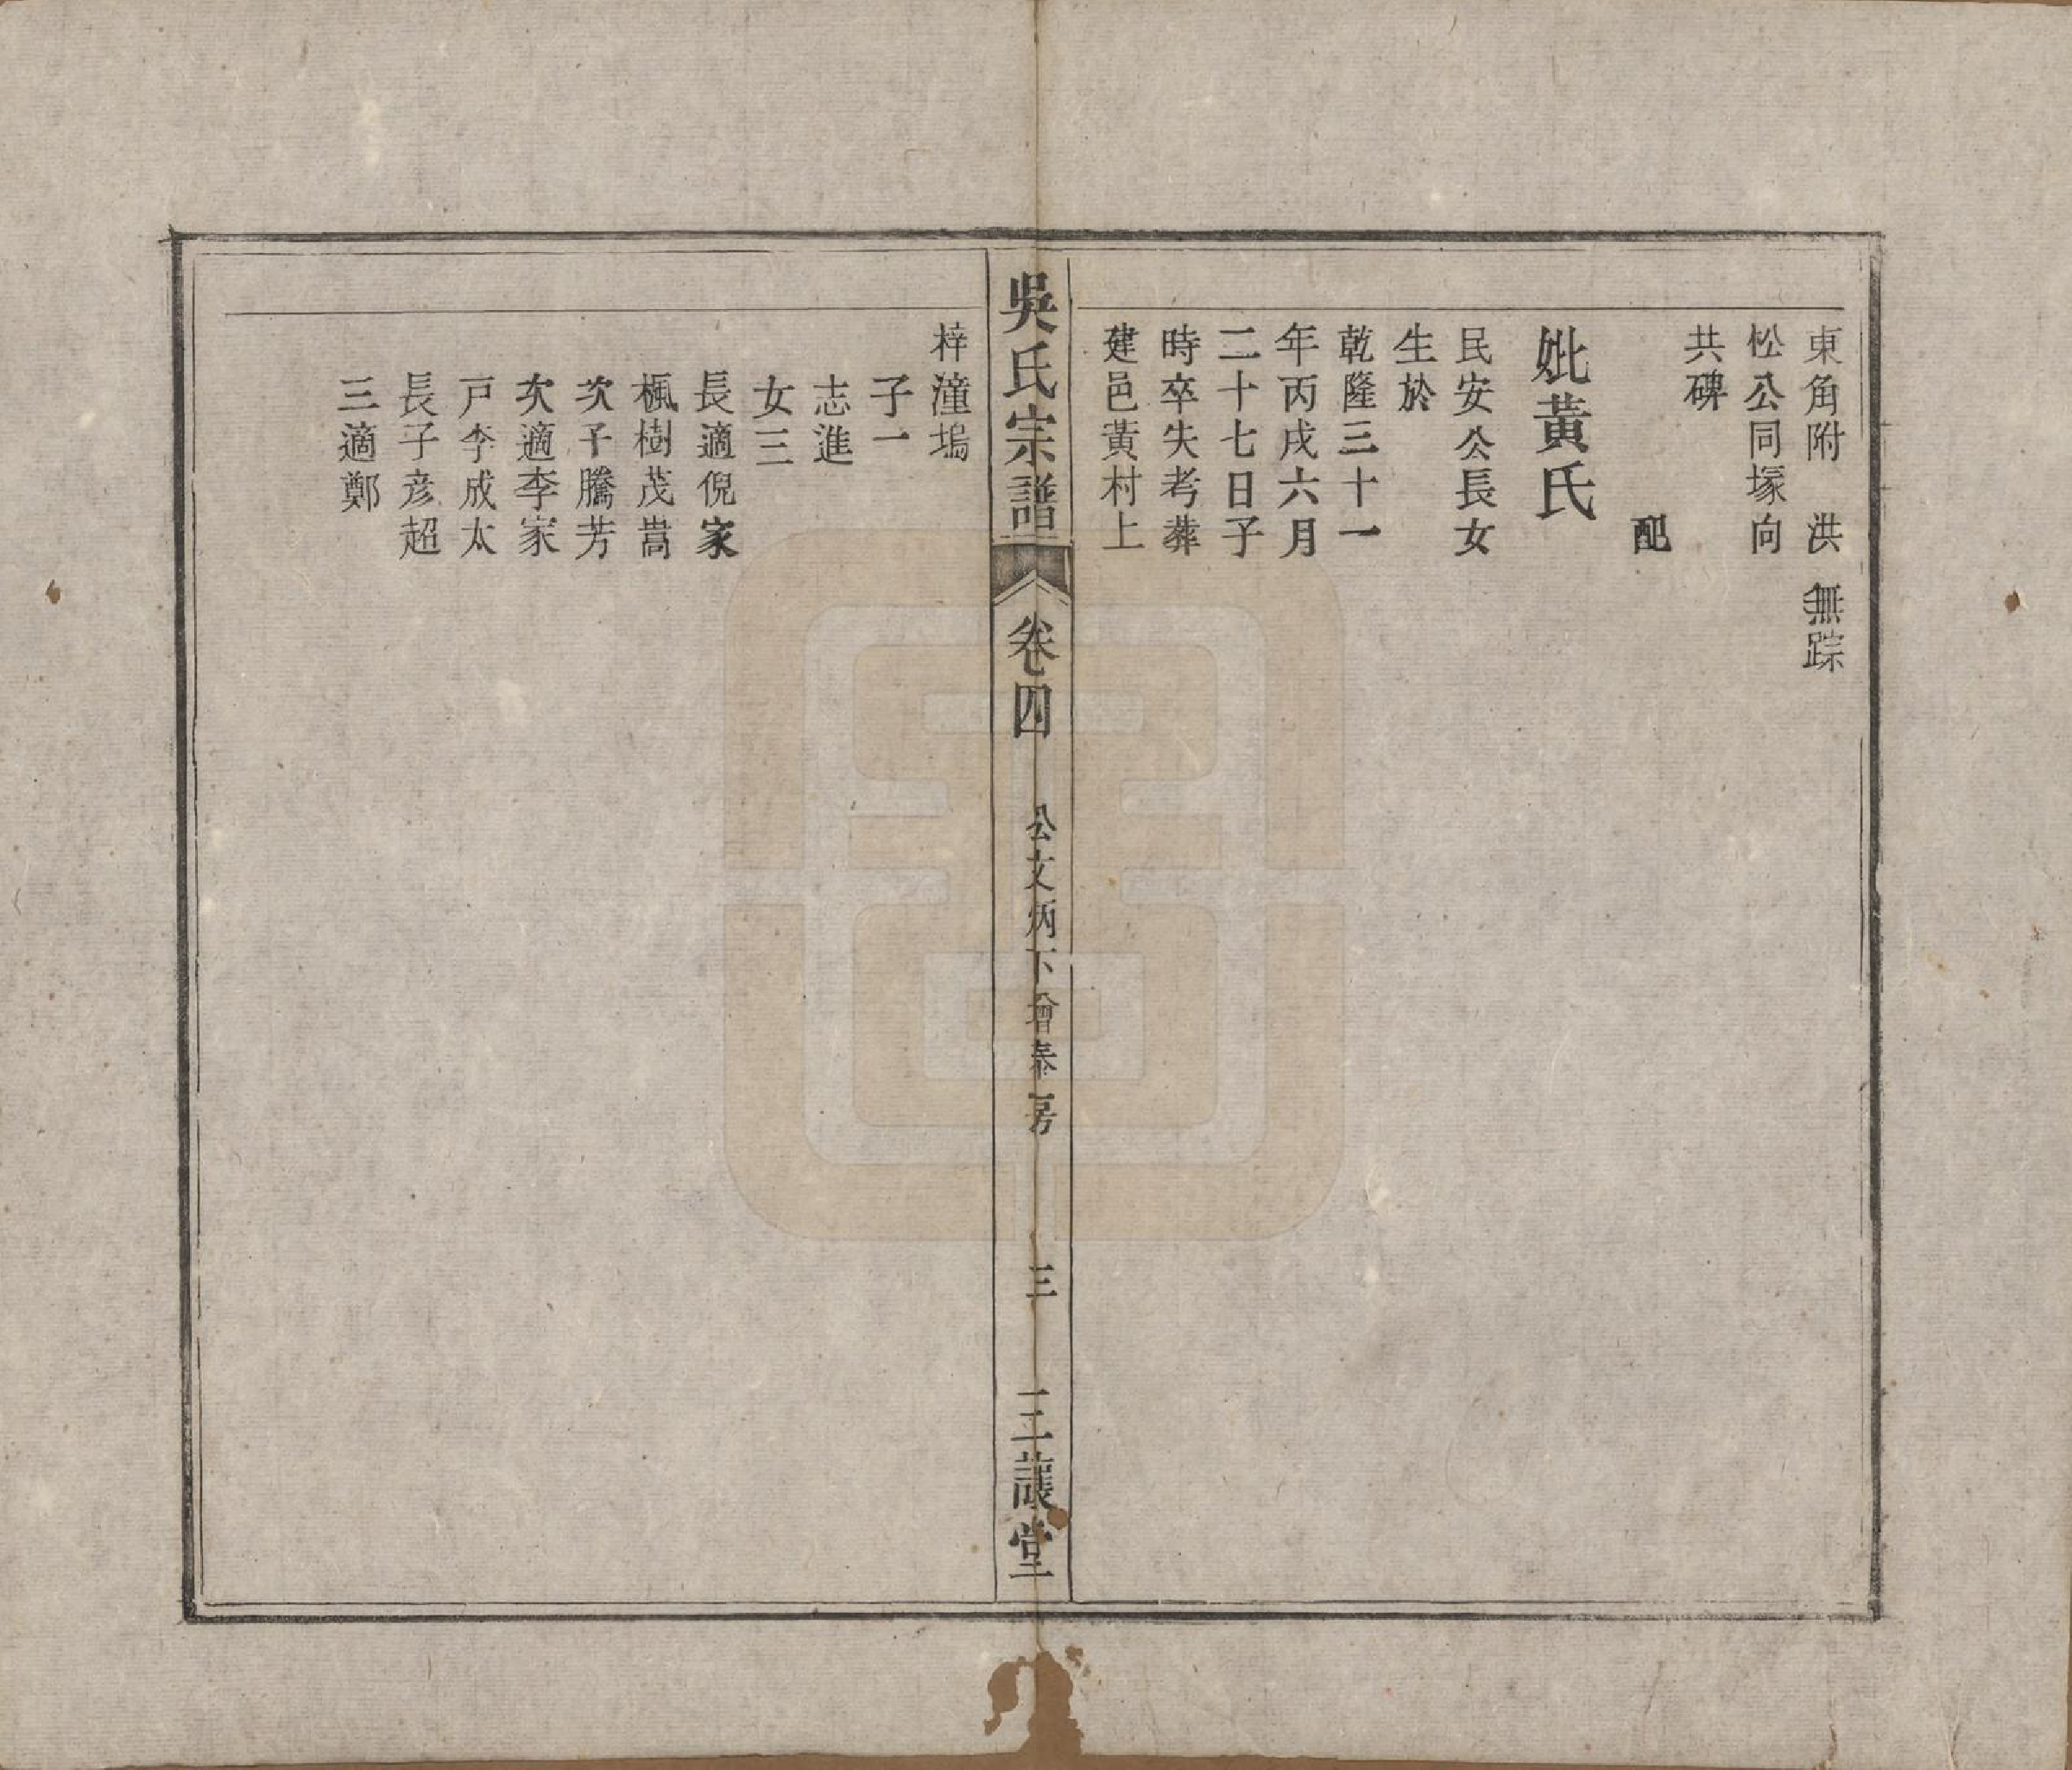 東角附　洪　無踪
松公同塚向
共碑
配
妣黃氏
民安公長女
生於
乾隆三十一
年丙戌六月
二十七日子
時卒失考葬
建邑黃村上
吳氏宗譜
卷四
公文炳下增泰房
三
三讓堂
梓潼塢
子一
志進
女三
長適倪家
楓樹茂嵩
次子騰芳
次適李家
戸李成太
長子彦超
三適鄭